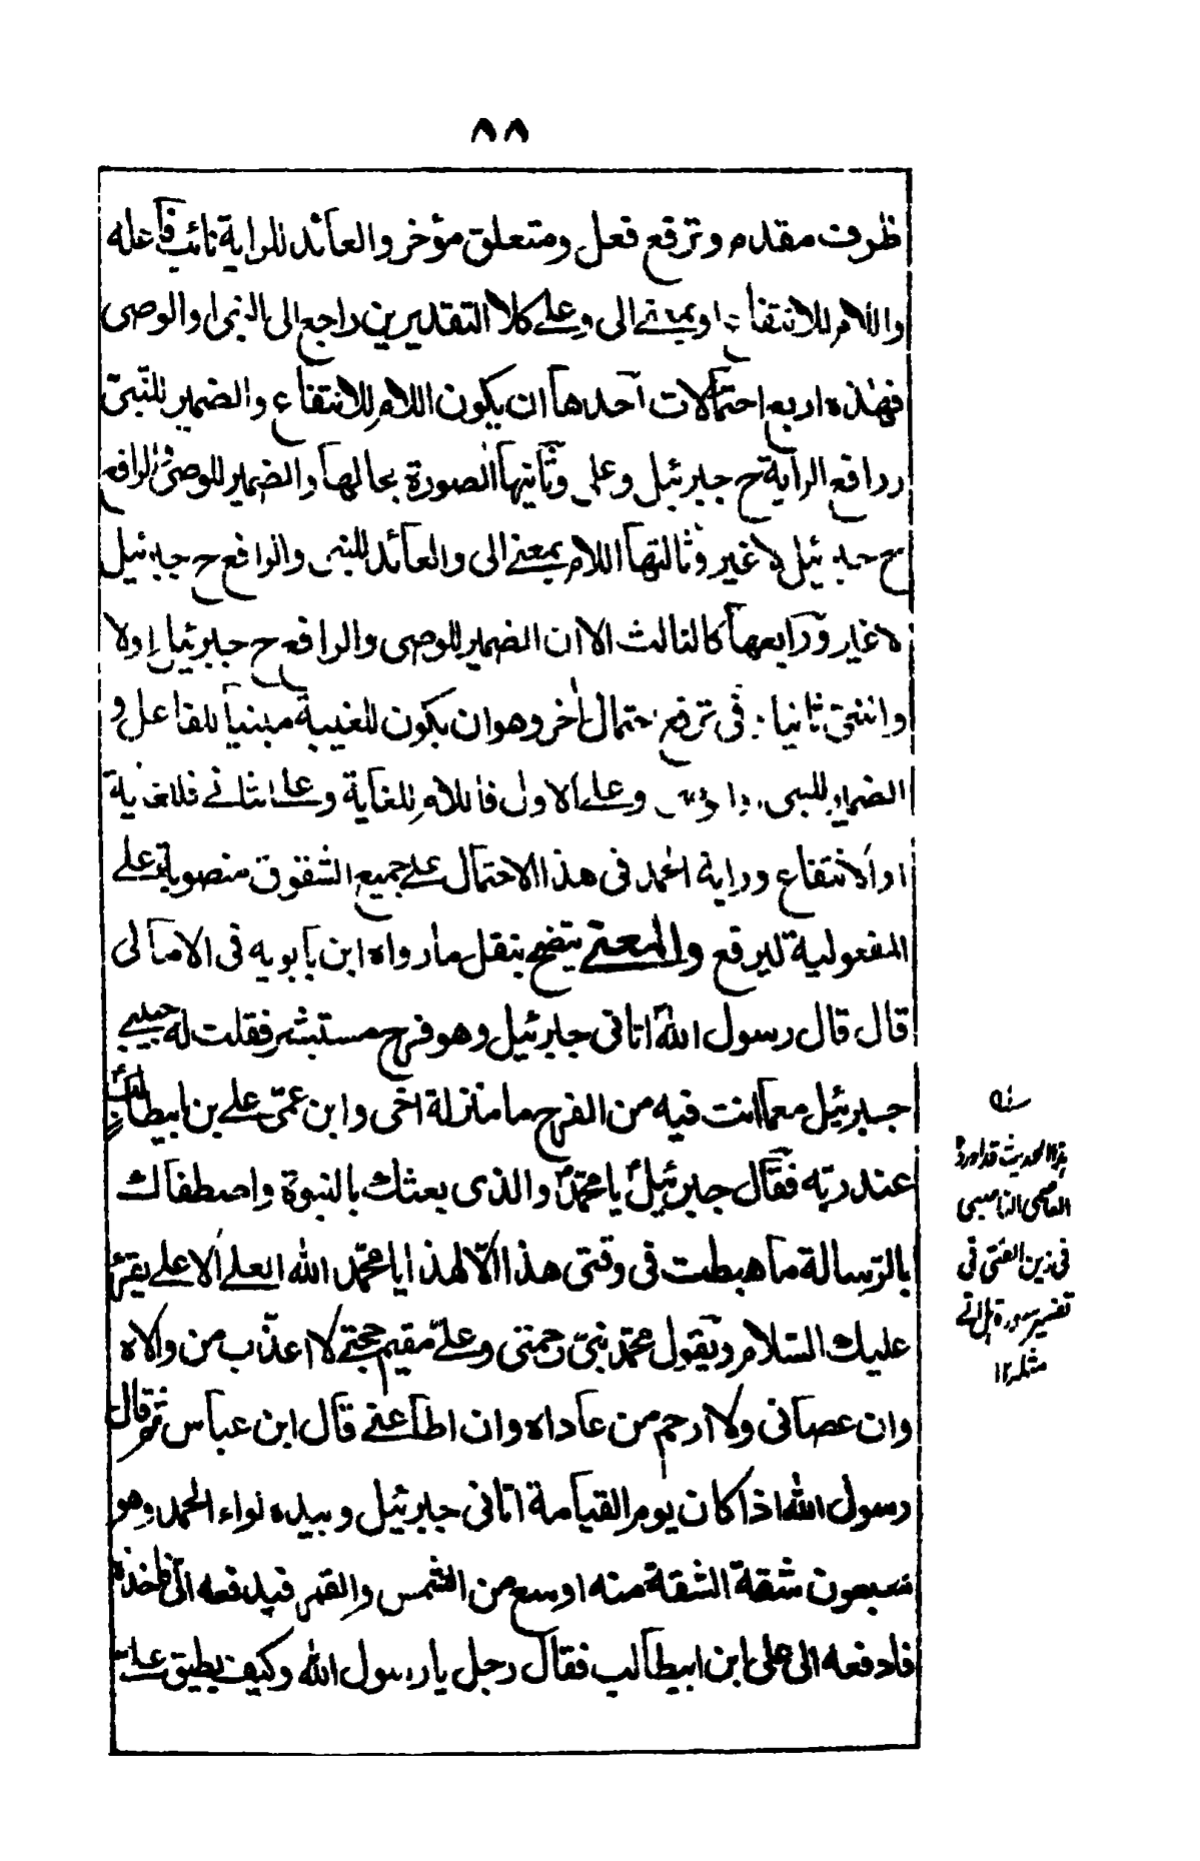 ٨٨
ظرف مقدم وترفع فعل ومتعلق مؤخر والعائد للراية نائب فاعله
واللام للانتفاع او بمعنے الى وعلے كلا التقديرين راجع الى النبی او الوصى
فهذه اربع احتمالات احدها ان يكون اللام للانتفاع والضمير للنبىّ
ورافع الراية ح جبرئيل وعلى وثانيها الصورة بحالها والضمير للوصى والرافع
ح جبرئيل لا غير وثالثها اللام بمعنے الى والعائد للنبى والرافع ح جبرئيل
لا غير ورابعها كالثالث الا ان الضمير للوصى والرافع ح جبرئيل اولا
والنبىّ ثانيا وفى ترفع احتمال اٰخر وهو ان يكون للغيبة مبنيا للفاعل و
الضمير للنبى وعلے الاول فاللام للغاية وعلے الثانے فللغاية
او الانتفاع وراية الحمد فى هذا الاحتمال علے جميع الشقوق منصوبة علے
المفعولية ليرفع والمعنے يتضح بنقل ما رواه ابن بابويه فى الامالى
قال قال رسول الله اتانى جبرئيل وهو فرح مستبشر فقلت له حبيبے
جبرئيل مع ما انت فيه من الفرح ما منزلة اخى وابن عمّى علے بن ابيطالب
عند ربّه فقال جبرئيل يا محمّد والذى بعثك بالنبوة واصطفاك
بالرّسالة ما هبطت فى وقتى هذا الّا لهذا يا محمّد الله العلے الاعلے يقرئ
عليك السّلام ويقول محمّد نبىّ رحمتى وعلےّ مقيم حجتے لا اعذّب من والاه
وان عصانى ولا ارحم من عاداه وان اطاعنے قال ابن عباس ثم قال
رسول الله اذا كان يوم القيامة اتانى جبرئيل وبيده لواء الحمد وهو
سبعون شقة الشقة منه اوسع من الشمس والقمر فيدفعه الىّ فاخذه
فادفعه الى على ابن ابيطالب فقال رجل يا رسول الله وكيف يطيق علے
هذا الحديث قد اورده
العاصمى الناصبى
فى زين الفتى فى
تفسير سورة هل اتے
منه ١٢